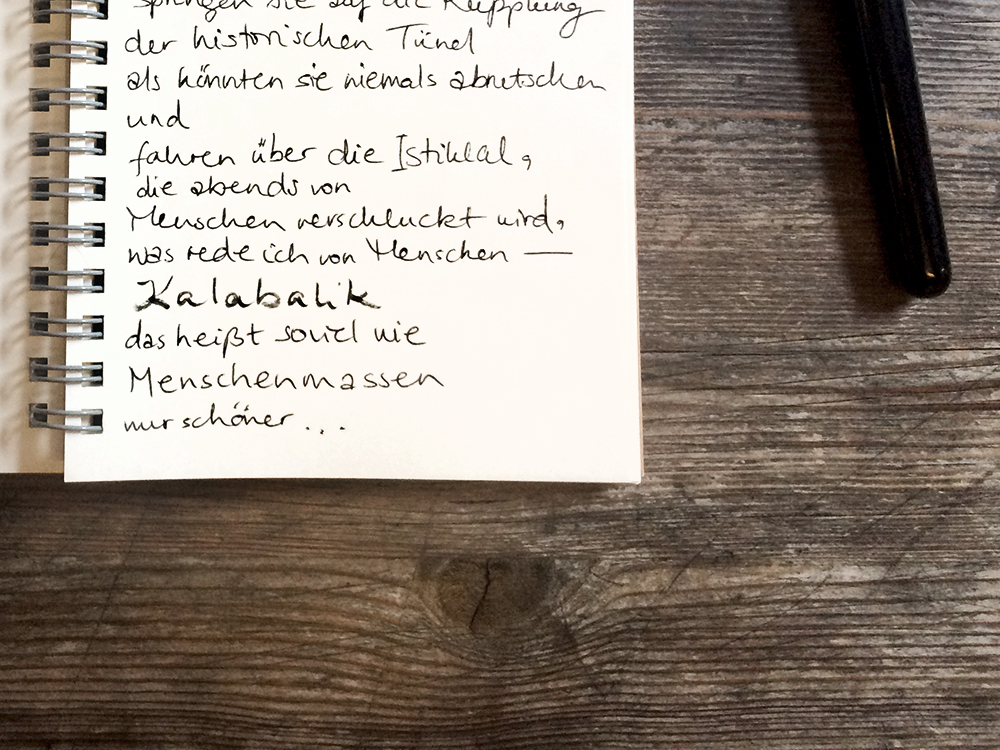 springen sie auf die Kupplung
der historischen Tünel
als könnten sie niemals abrutschen
und
fahren über die Istiklal,
die abends von
Menschen verschluckt wird,
was rede ich von Menschen —
Kalabalik
das heißt soviel wie
Menschenmassen
nur schöner...